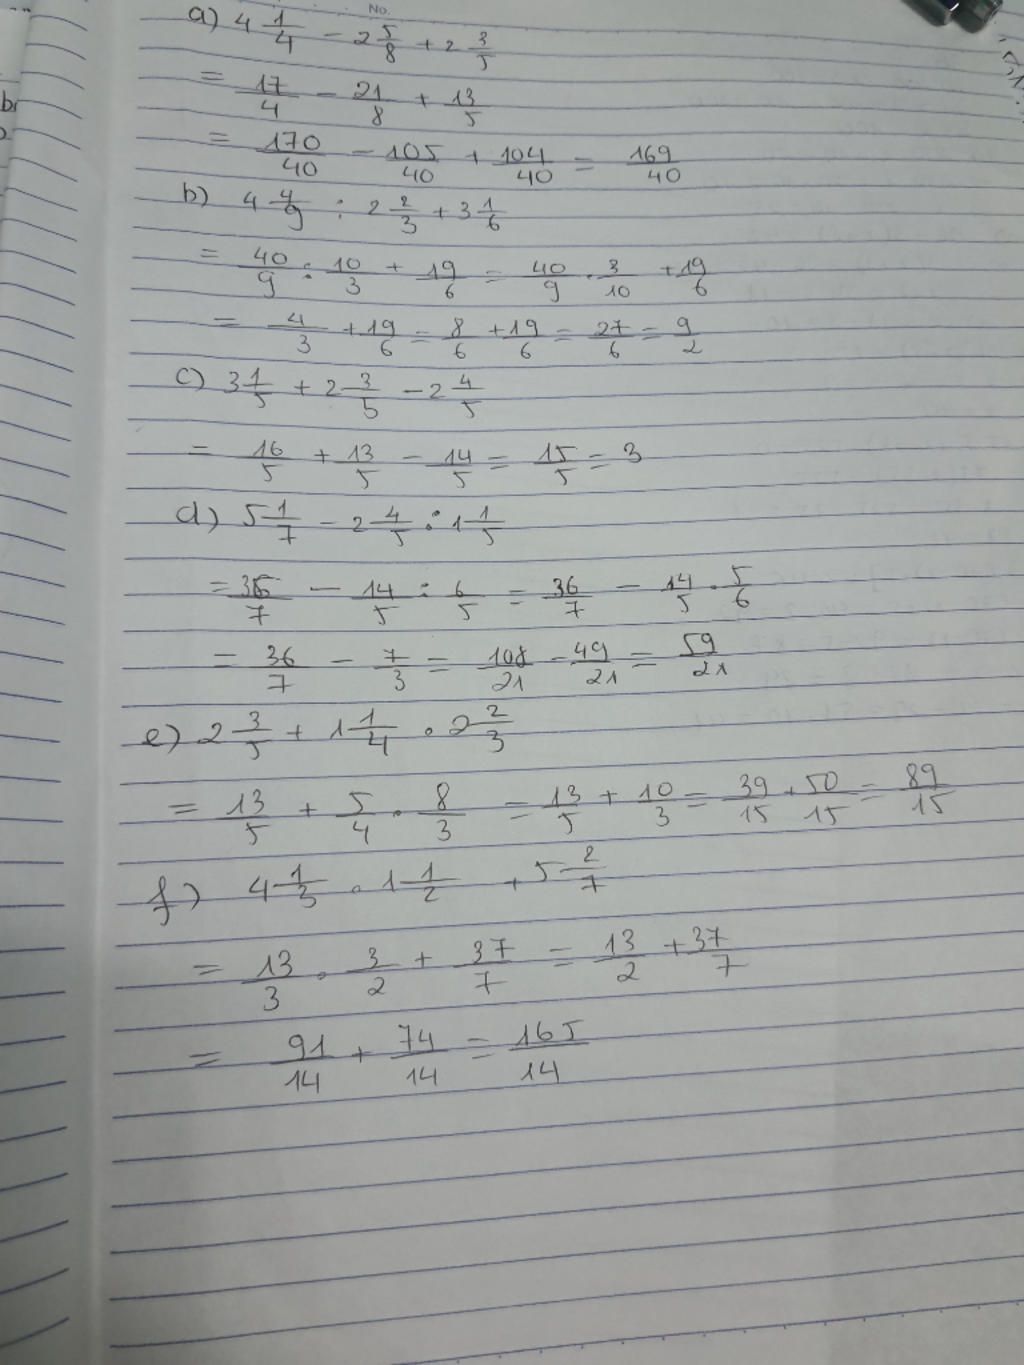 No.
a) 4 1/4 - 2 5/8 + 2 3/5
= 17/4 - 21/8 + 13/5
= 170/40 - 105/40 + 104/40 = 169/40
b) 4 4/9 : 2 2/3 + 3 1/6
= 40/9 : 10/3 + 19/6 = 40/9 . 3/10 + 19/6
= 4/3 + 19/6 = 8/6 + 19/6 = 27/6 = 9/2
c) 3 1/5 + 2 3/5 - 2 4/5
= 16/5 + 13/5 - 14/5 = 15/5 = 3
d) 5 1/7 - 2 4/5 : 1 1/5
= 36/7 - 14/5 : 6/5 = 36/7 - 14/5 . 5/6
= 36/7 - 7/3 = 108/21 - 49/21 = 59/21
e) 2 3/5 + 1 1/4 . 2 2/3
= 13/5 + 5/4 . 8/3 = 13/5 + 10/3 = 39/15 + 50/15 = 89/15
f) 4 1/3 . 1 1/2 + 5 2/7
= 13/3 . 3/2 + 37/7 = 13/2 + 37/7
= 91/14 + 74/14 = 165/14